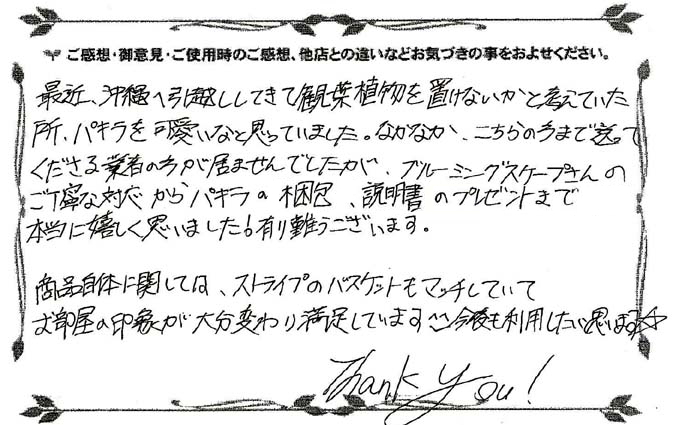 ご感想・御意見・ご使用時のご感想、他店との違いなどお気づきの事をおよせください。
最近、沖縄へ引越ししてきて観葉植物を置けないかと考えていた
所、パキラを可愛いなと思っていました。なかなか、こちらの方まで送って
くださる業者の方が居ませんでしたが、ブルーミングスケープさんの
ご丁寧な対応からパキラの梱包、説明書のプレゼントまで
本当に嬉しく思いました!有り難うございます。
商品自体に関しては、ストライプのバスケットもマッチしていて
お部屋の印象が大分変わり満足しています^^今後も利用したい思います☆
Thank You!